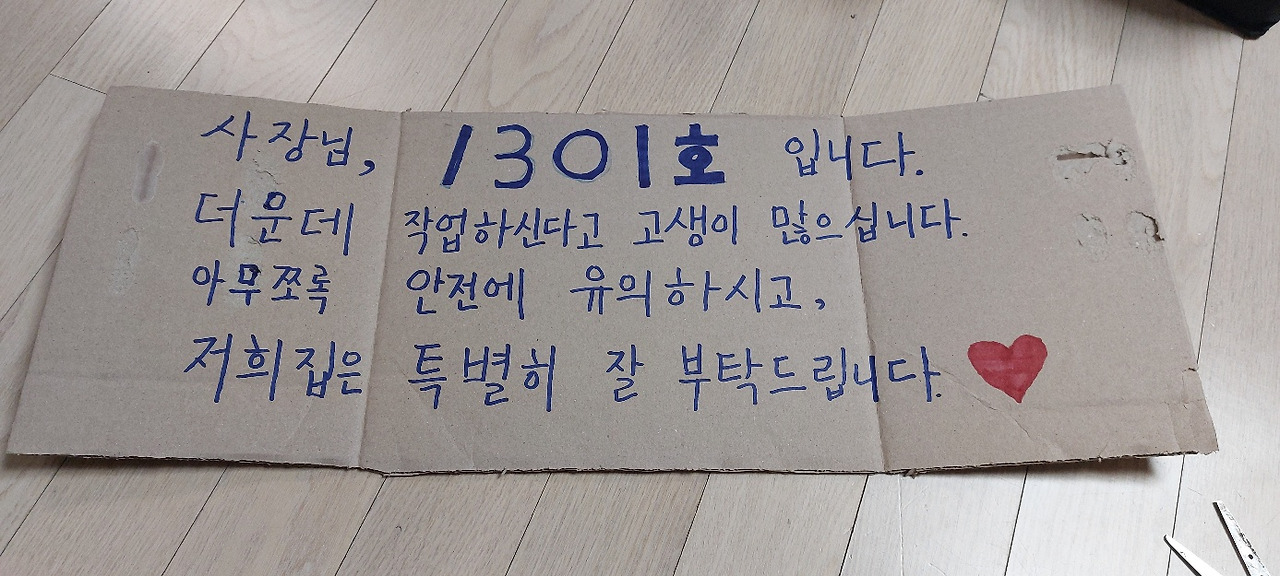 사장님, 1301호 입니다.
더운데 작업하신다고 고생이 많으십니다.
아무쪼록 안전에 유의하시고,
저희집은 특별히 잘 부탁드립니다.